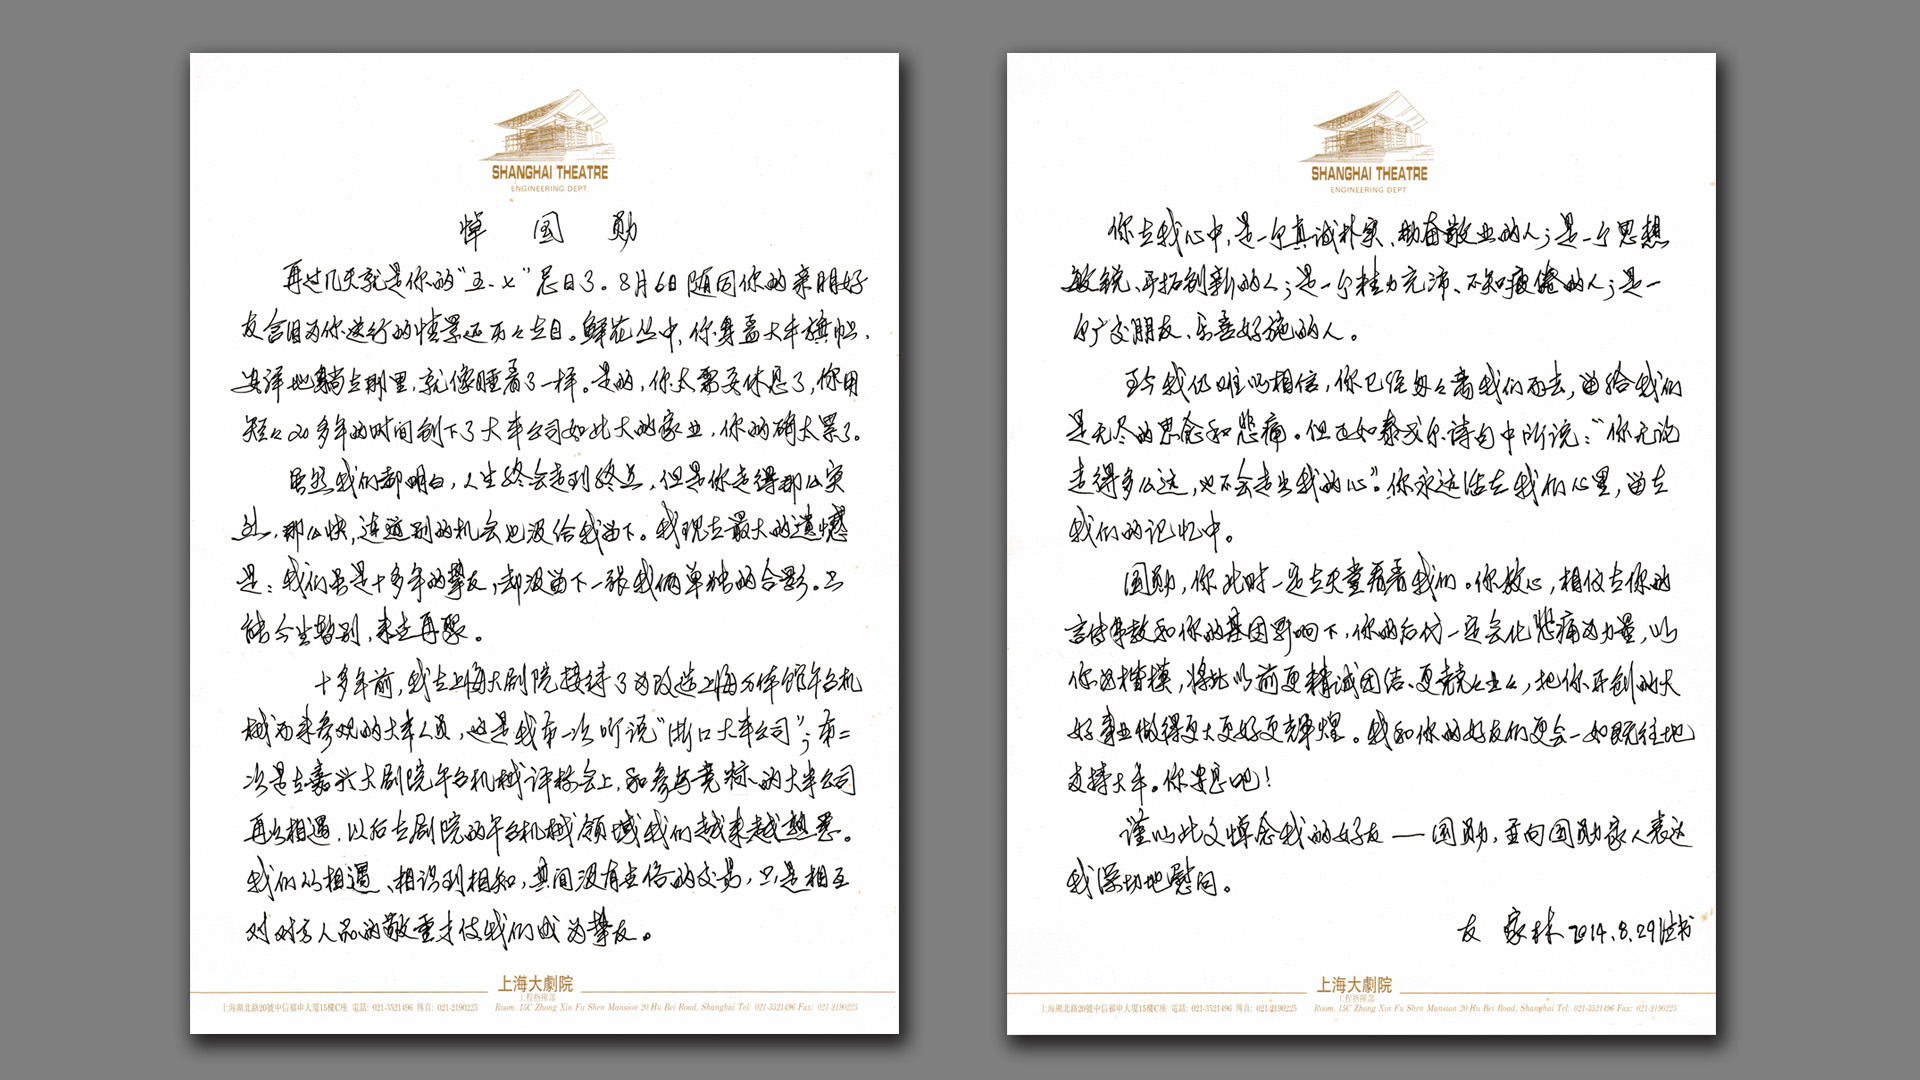 SHANGHAI THEATRE
ENGINEERING DEPT
悼 国 勋
再过几天就是你的“五·七”忌日了。8月6日随同你的亲朋好
友含泪为你送行的情景还历々在目。鲜花丛中，你身盖大丰旗帜，
安详地躺在那里，就像睡着了一样。是的，你太需要休息了，你用
短々20多年的时间创下了大丰公司如此大的家业，你的确太累了。
虽然我们都明白，人生终会走到终点，但是你走得那么突
然，那么快，连道别的机会也没给我留下。我现在最大的遗憾
是：我们虽是十多年的挚友，却没留下一张我俩单独的合影。只
能今生暂别，来世再聚。
十多年前，我在上海大剧院接待了为改造上海万体馆午台机
械而来参观的大丰人员，这是我第一次听说“浙江大丰公司”；第二
次是在嘉兴大剧院午台机械评标会上，和参与竞标的大丰公司
再次相遇，以后在剧院的午台机械领域我们越来越熟悉。
我们从相遇、相识到相知，其间没有吉伦的交易，只是相互
对对方人品的敬重才使我们成为挚友。
上海大劇院
工程指揮部
上海湖北路20號中信福申大厦15樓C座 電話: 021-3521496 傳真: 021-2190225 Room, 15C Zhong Xin Fu Shen Mansion 20 Hu Bei Road, Shanghai Tel: 021-3521496 Fax: 021-2190225
SHANGHAI THEATRE
ENGINEERING DEPT
你在我心中，是一个真诚朴实、勤奋敬业的人；是一个思想
敏锐、开拓创新的人；是一个精力充沛、不知疲倦的人；是一
个广交朋友、乐善好施的人。
至今我仍难以相信，你已经匆々离我们而去，留给我们
是无尽的思念和悲痛。但正如泰戈尔诗句中所说：“你无论
走得多么远，也不会走出我的心”。你永远活在我们心里，留在
我们的记忆中。
国勋，你此时一定在天堂看着我们。你放心，相信在你的
言传身教和你的基因影响下，你的后代一定会化悲痛为力量，以
你为楷模，将比以前更精诚团结、更兢々业々，把你开创的大
好事业做得更大更好更辉煌。我和你的好友们更会一如既往地
支持大丰。你安息吧！
谨以此文悼念我的好友——国勋，并向国勋家人表达
我深切地慰问。
友 家林 2014.8.29泣书
上海大劇院
工程指揮部
上海湖北路20號中信福申大厦15樓C座 電話: 021-3521496 傳真: 021-2190225 Room, 15C Zhong Xin Fu Shen Mansion 20 Hu Bei Road, Shanghai Tel: 021-3521496 Fax: 021-2190225